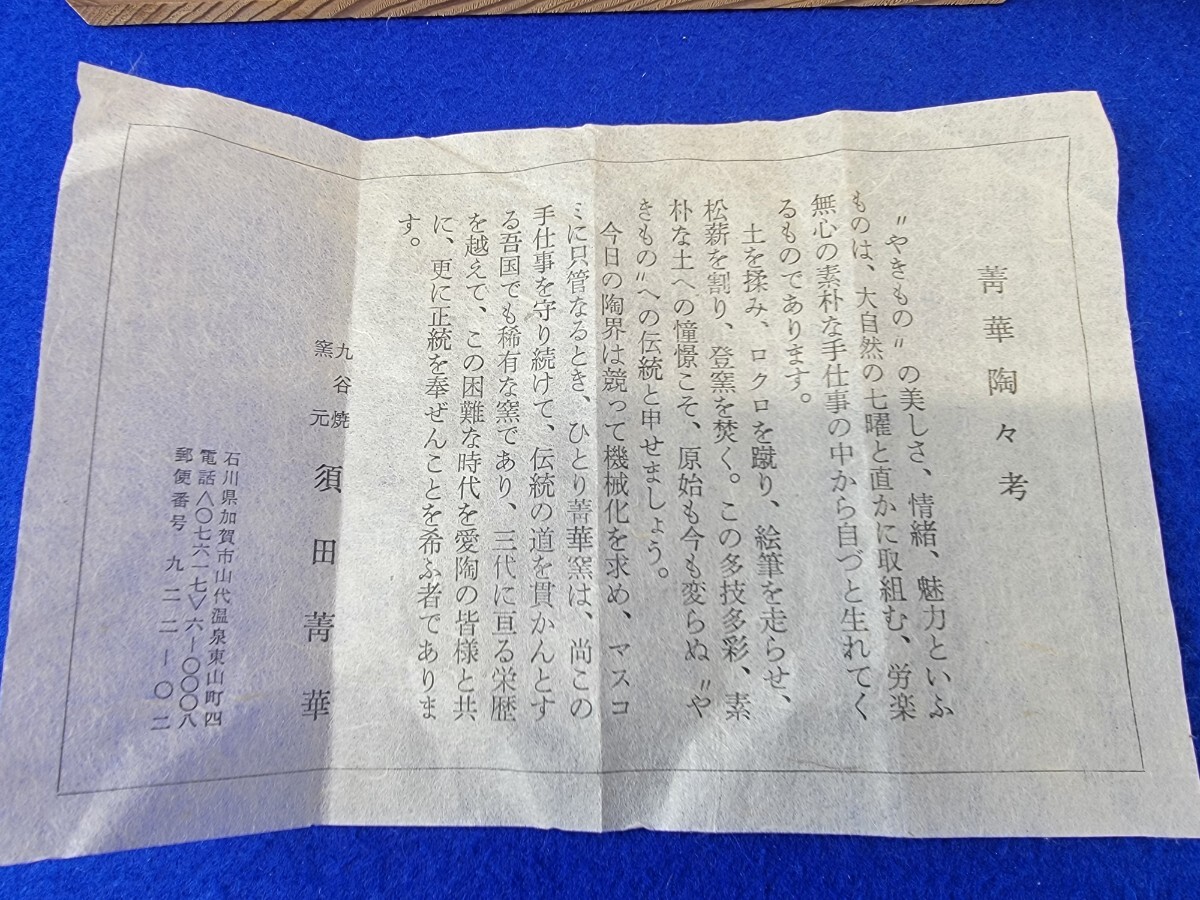 菁華陶々考
〝やきもの〟の美しさ、情緒、魅力といふ
ものは、大自然の七曜と直かに取組む、労楽
無心の素朴な手仕事の中から自づと生れてく
るものであります。
土を揉み、ロクロを蹴り、絵筆を走らせ、
松薪を割り、登窯を焚く。この多技多彩、素
朴な土への憧憬こそ、原始も今も変らぬ〝や
きもの〟への伝統と申せましょう。
今日の陶界は競って機械化を求め、マスコ
ミに只管なるとき、ひとり菁華窯は、尚この
手仕事を守り続けて、伝統の道を貫かんとす
る吾国でも稀有な窯であり、三代に亘る栄歴
を越えて、この困難な時代を愛陶の皆様と共
に、更に正統を奉ぜんことを希ふ者でありま
す。
九谷焼
窯元
須田菁華
石川県加賀市山代温泉東山町四
電話〈〇七六一七〉六―〇〇〇八
郵便番号 九二二―〇二